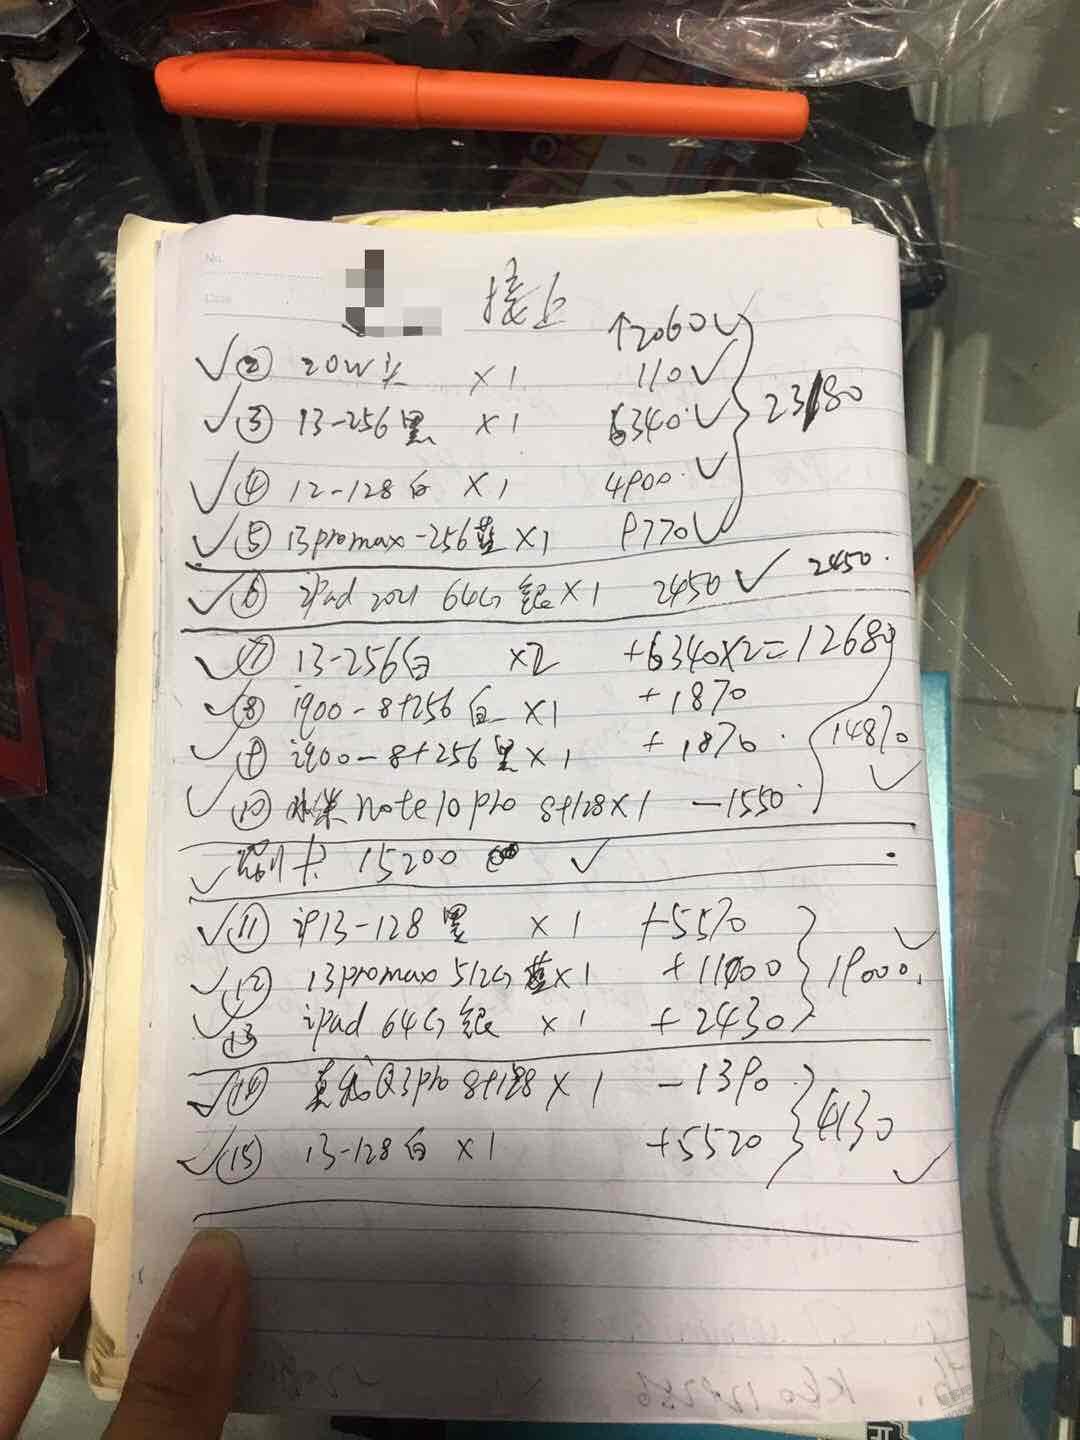 No.
Date
接上
↑2060✓
✓② 20W头 ×1 110✓
✓③ 13-256黑 ×1 6340✓ 23180
✓④ 12-128白 ×1 4900✓
✓⑤ 13promax-256蓝×1 9770✓
✓⑥ iPad 2021 64G 银×1 2450✓ 2450
✓⑦ 13-256白 ×2 +6340×2=12680
✓⑧ i900-8+256白 ×1 +1870
✓⑨ i900-8+256黑×1 +1870 14870
✓⑩ note10pro 8+128×1 -1550 ✓
✓刷卡 15200 ✓
✓⑪ iP13-128黑 ×1 +5570 ✓
✓⑫ 13promax 512G 蓝×1 +11000 19000
✓⑬ ipad 64G 银 ×1 +2430
✓⑭ 真我Q3pro 8+128×1 -1390
✓⑮ 13-128白×1 +5520 4130 ✓